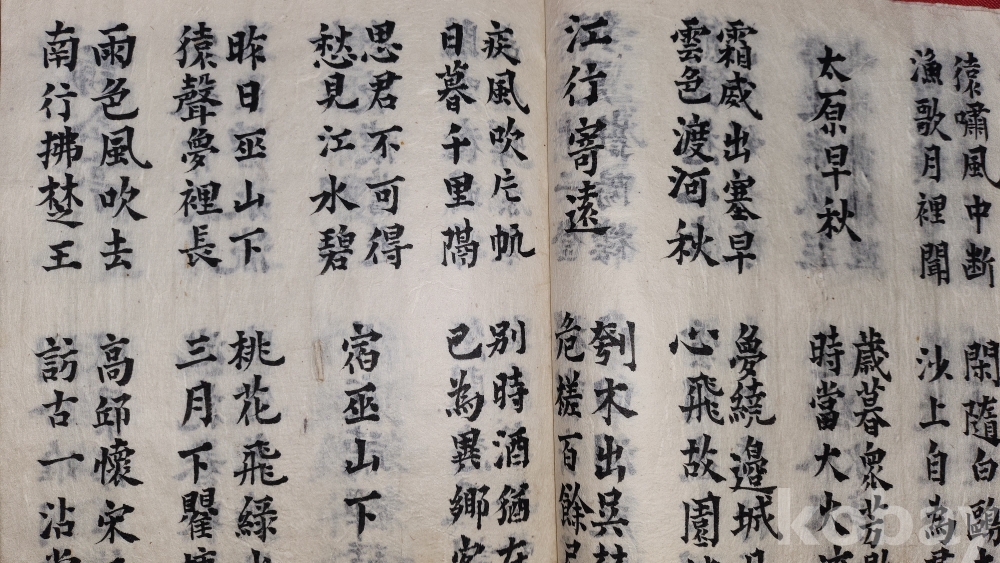 猿嘯風中断 閑隨白鷗
漁歌月裡聞 沙上自為
太原早秋
歲暮衆芳
時當大火
霜威出塞早 夢繞邊城
雲色渡河秋 心飛故園
江行寄遠
刳木出吳
危槎百餘
疾風吹片帆 別時酒猶在
日暮千里隔 已為異鄉客
思君不可得
愁見江水碧
宿巫山下
昨日巫山下 桃花飛綠
猿聲夢裡長 三月下瞿
雨色風吹去 高邱懷宋
南行拂楚王 訪古一沾
kopay